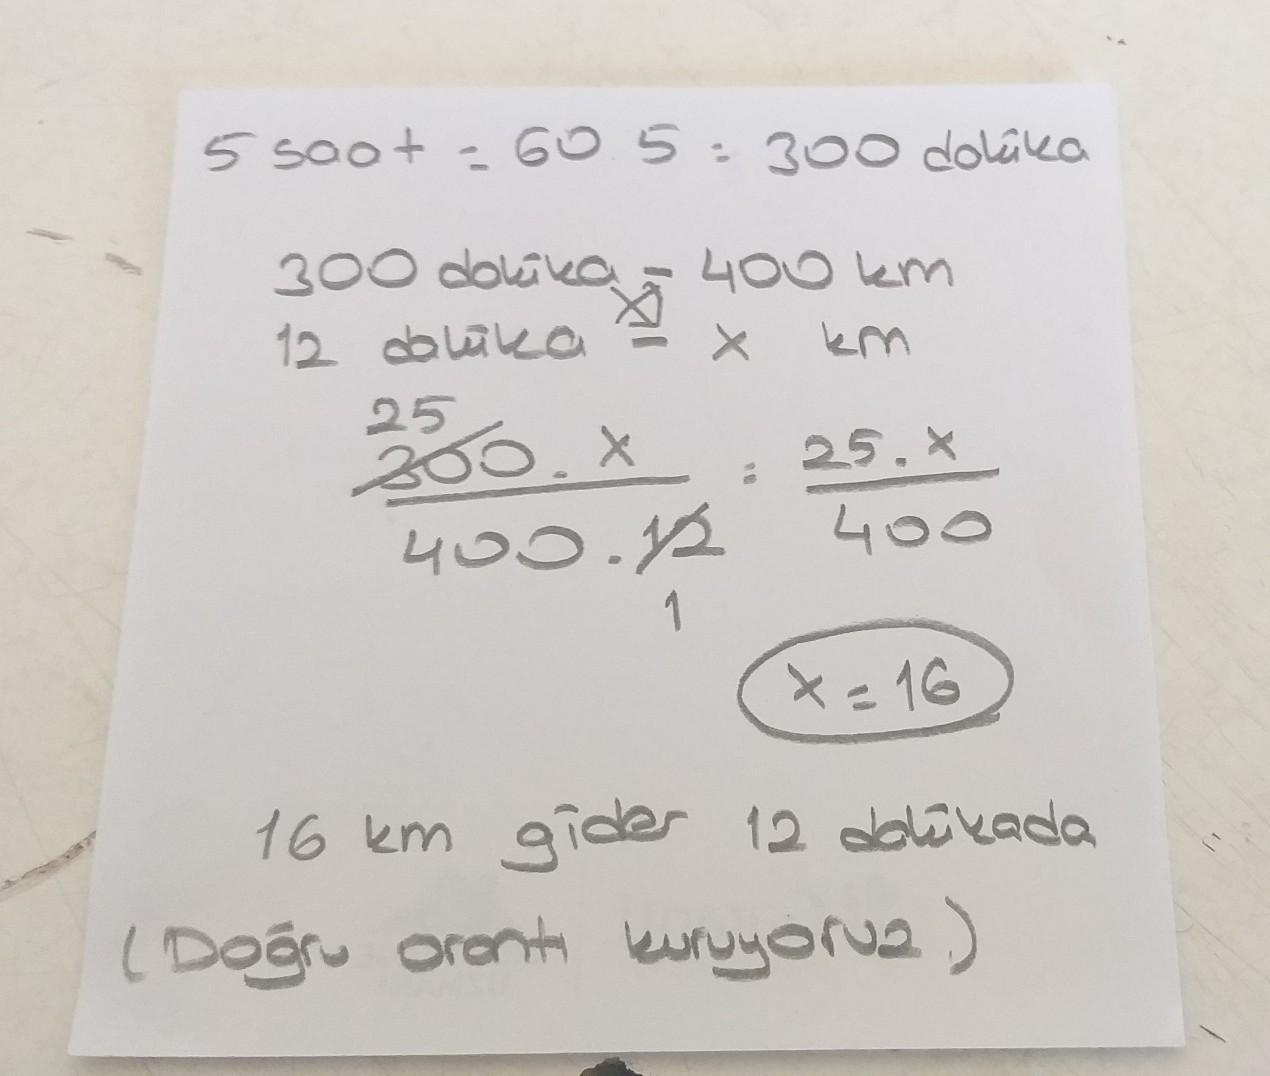 5 saat = 60 5 = 300 dakika
300 dakika = 400 km
12 dakika = x km
25
300 . x = 25 . x
400 . 12 400
1
x = 16
16 km gider 12 dakikada
(Doğru orantı kuruyoruz.)